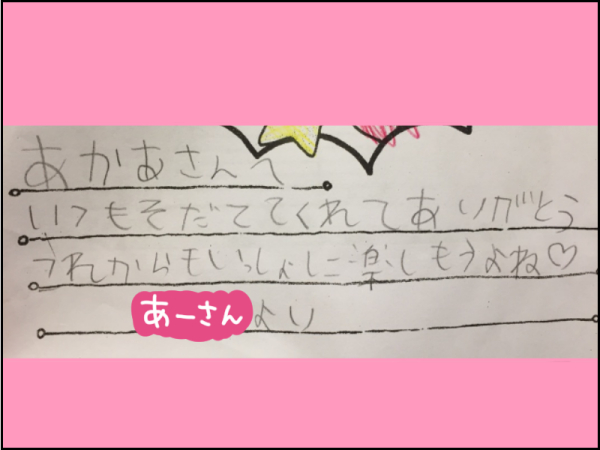 あかあさんへ
いつもそだててくれてありがとう
これからもいっしょに楽しもうよね♡
あーさんより